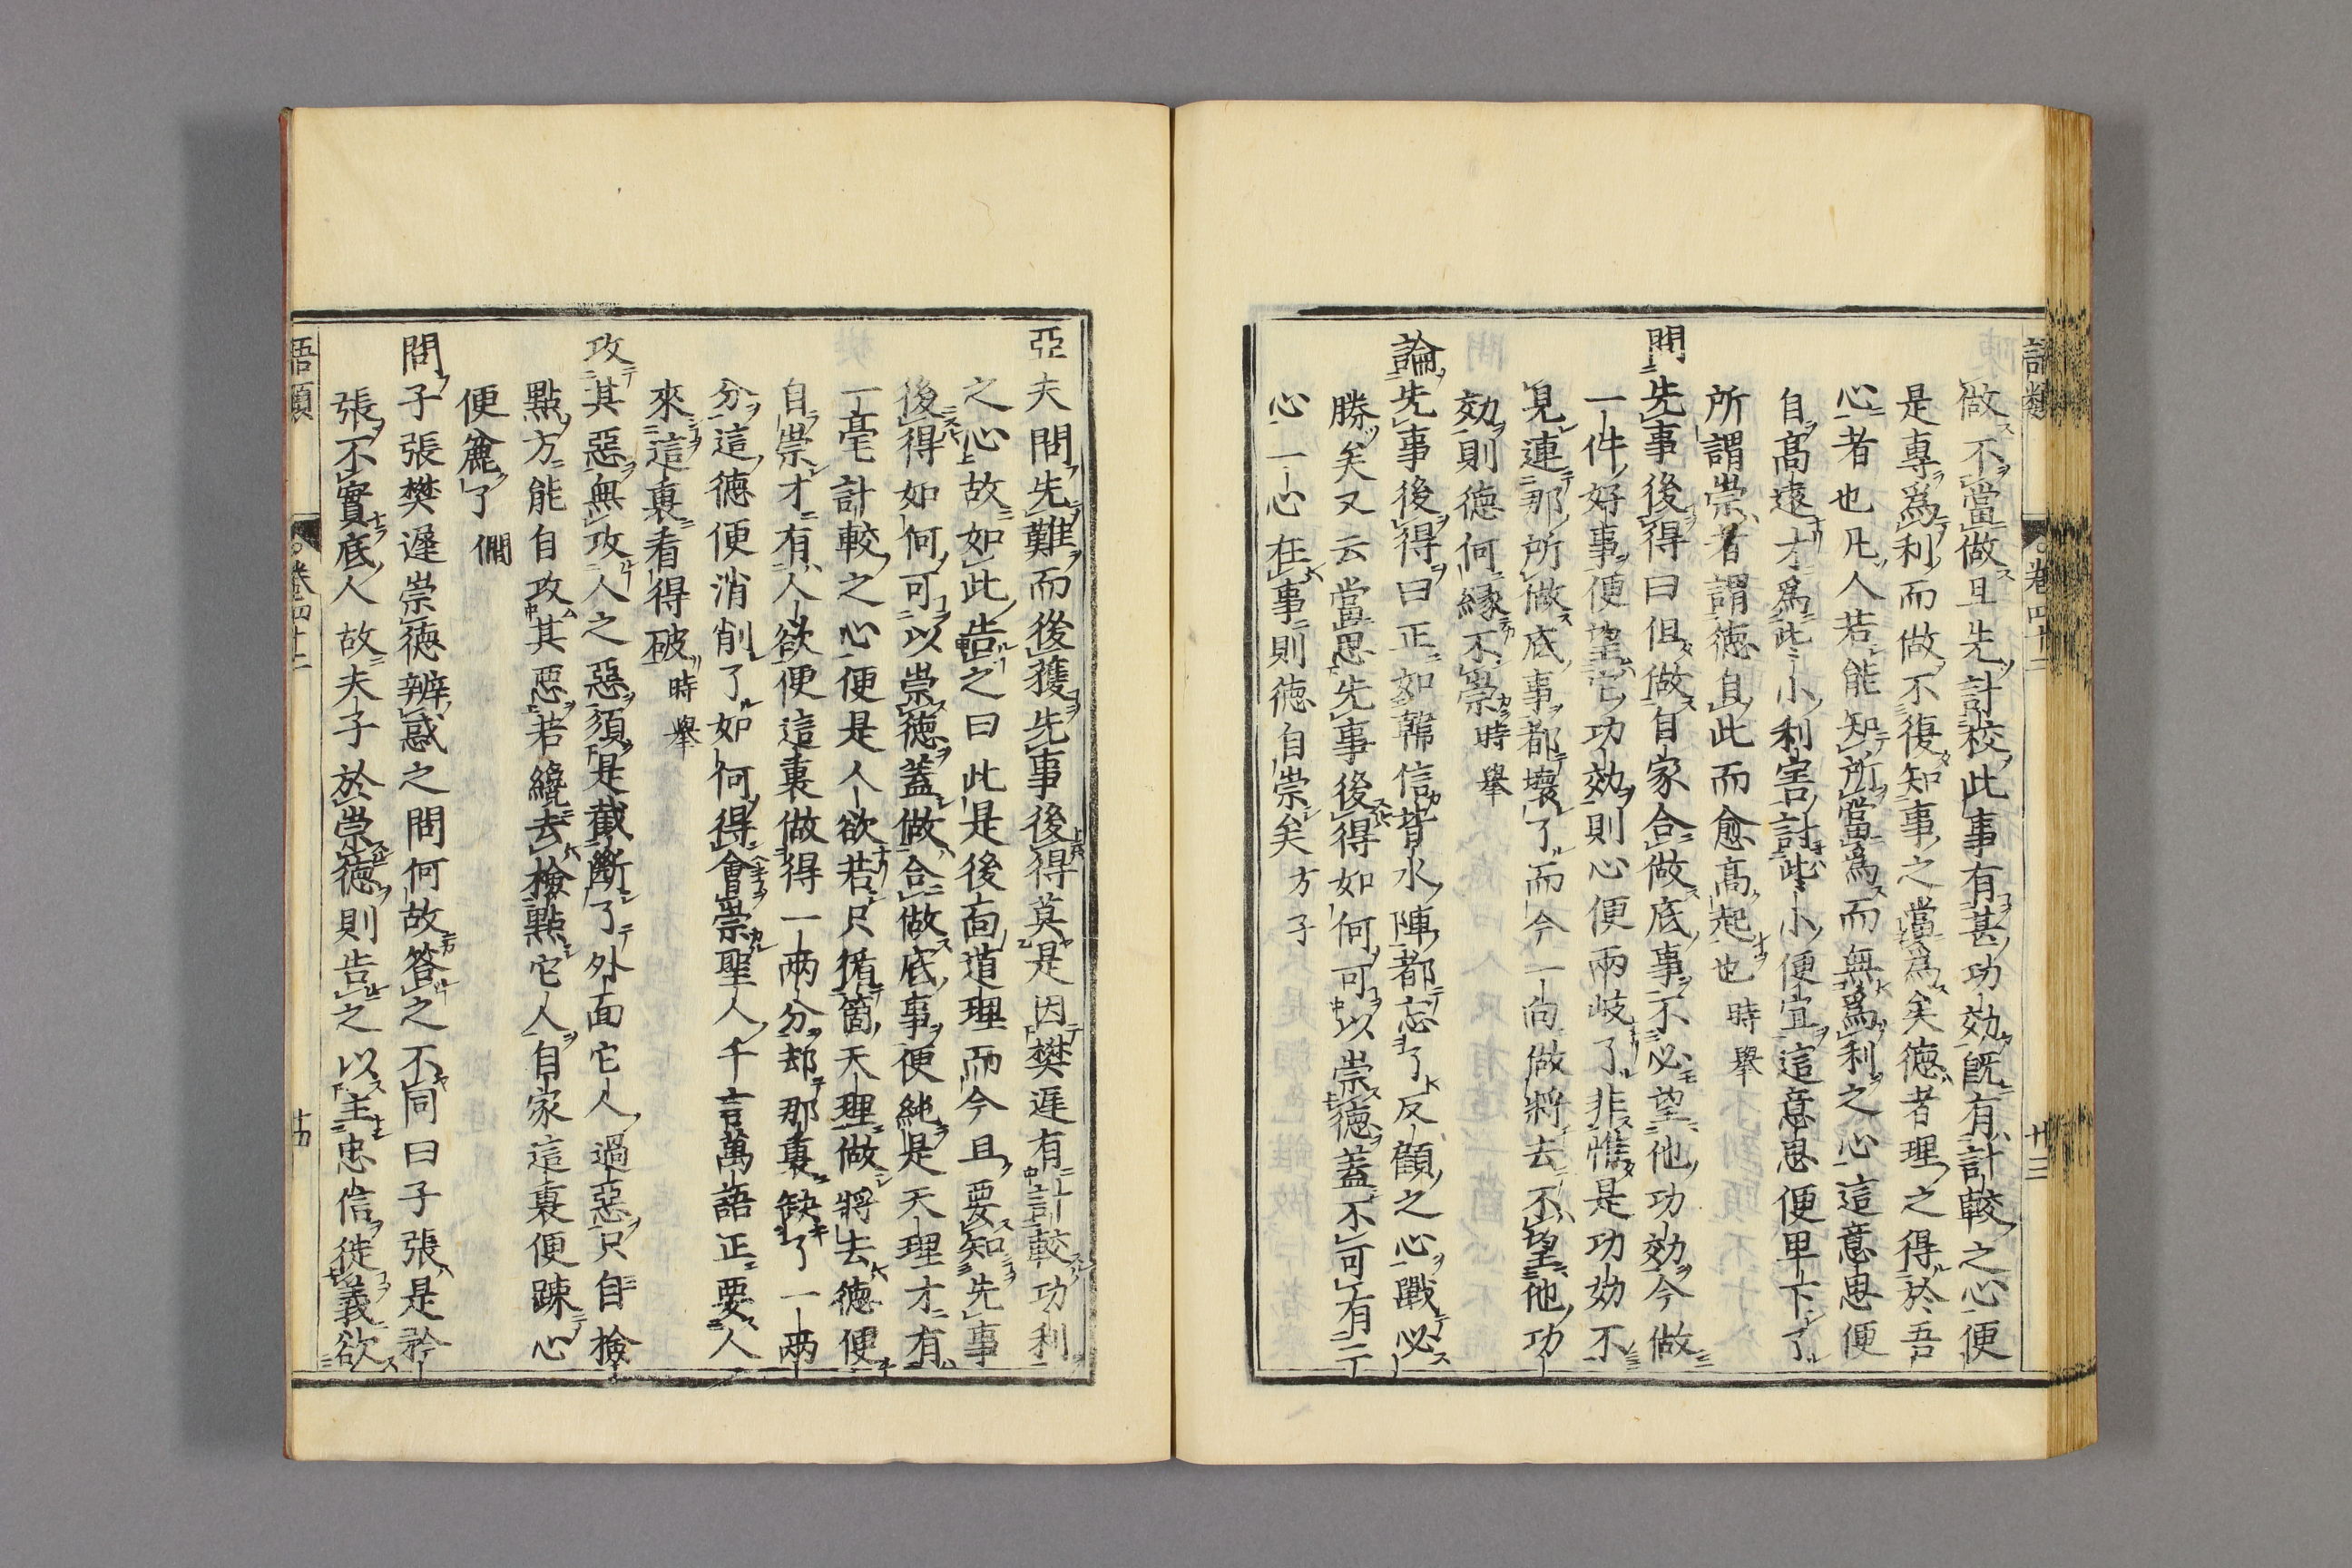 語類
卷四十二
廿三
做不當做且先計挍此事有甚功効旣有計較之心便
是專爲利而做不復知事之當爲矣德者理之得於吾
心者也凡人若能知所當爲而無爲利之心這意思便
自高遠才爲些小利害討些小便宜這意思便卑下了
所謂崇者謂德自此而愈高起也 時舉
問先事後得曰但做自家合做底事不必望他功効今做
一件好事便望它功効則心便兩岐了非惟是功効不
見連那所做底事都壞了而今一向做將去不望他功
効則德何縁不崇 時舉
論先事後得曰正如韓信背水陣都忘了反顧之心戰必
勝矣又云當思先事後得如何可以崇德蓋不可有二
心一心在事則德自崇矣 方子
亞夫問先難而後獲先事後得莫是因樊遲有計較功利
之心故如此告之曰此是後面道理而今且要知先事
後得如何可以崇德蓋做合做底事便純是天理才有
一毫計較之心便是人欲若只循箇天理做將去德便
自崇才有人欲便這裏做得一兩分却那裏缺了一兩
分這德便消削了如何得會崇聖人千言萬語正要人
來這裏看得破 時舉
攻其惡無攻人之惡須是截斷了外面它人過惡只自檢
點方能自攻其惡若纔去檢點它人自家這裏便踈心
便麄了 僩
問子張樊遲崇德辨惑之問何故答之不同曰子張是矜
張不實底人故夫子於崇德則告之以主忠信徙義欲
語類
卷四十二